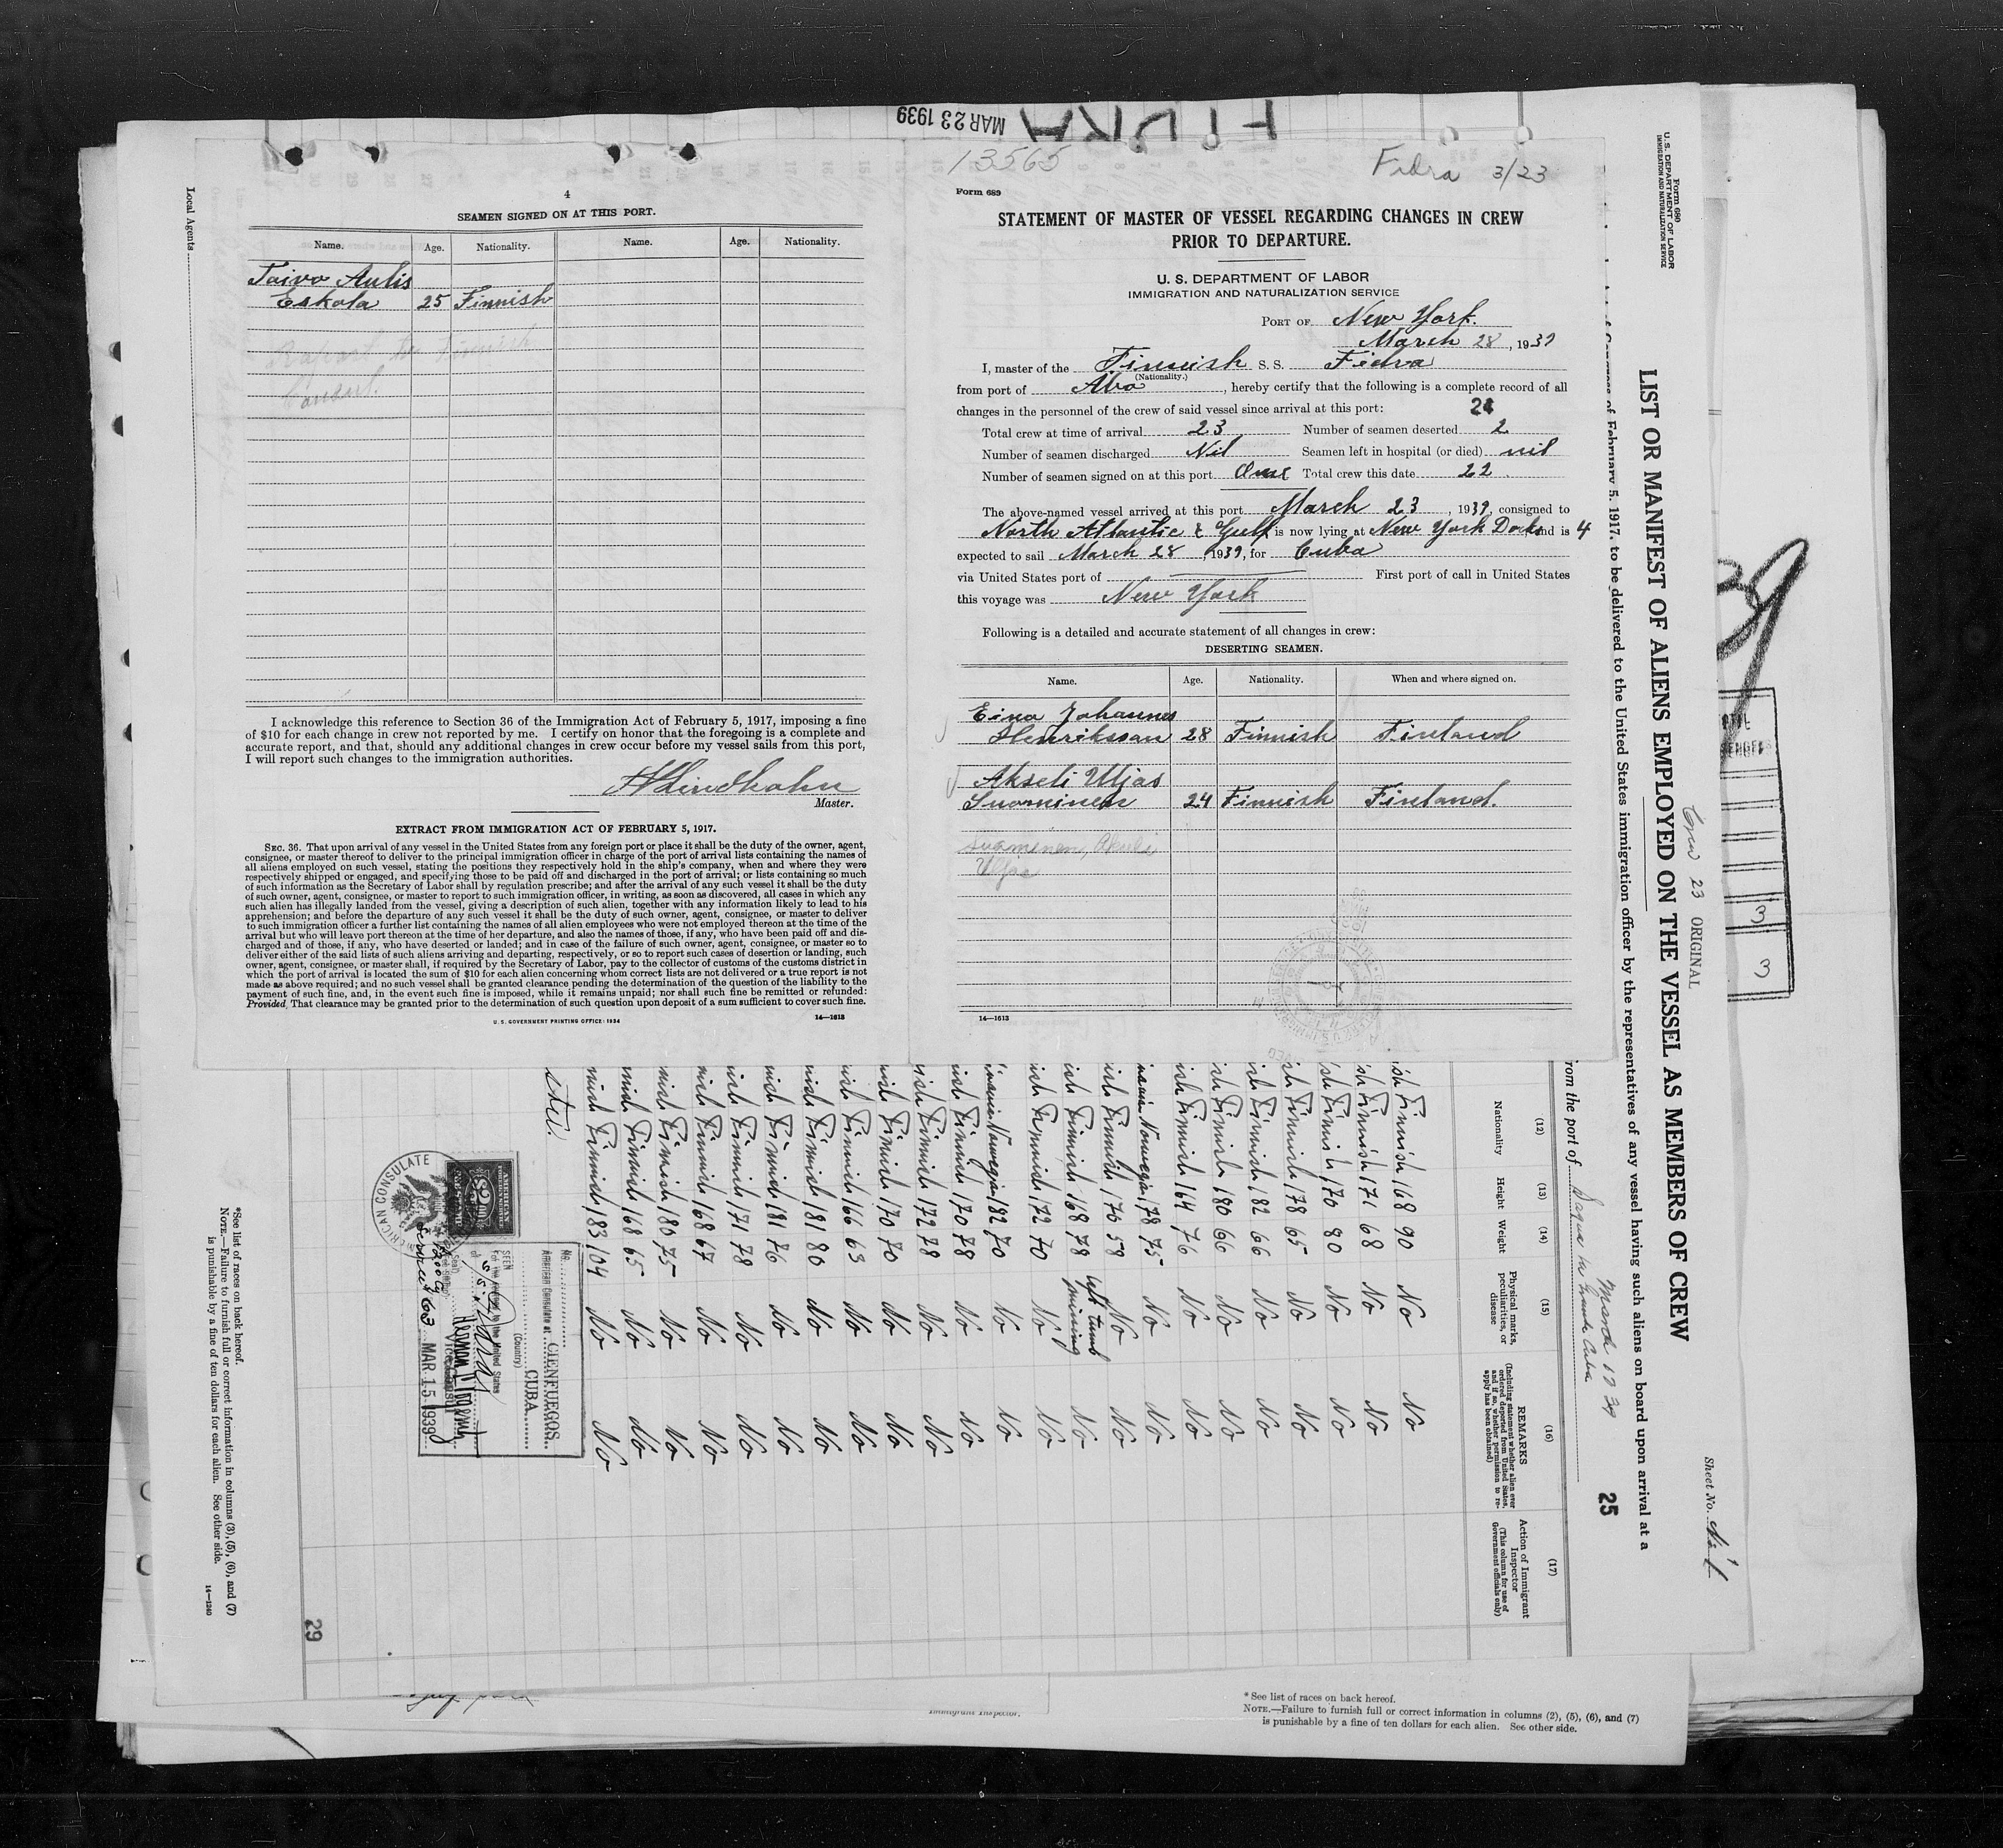 MAR 23 1939
FIDRA
Local Agents
4
SEAMEN SIGNED ON AT THIS PORT.
Name. Age. Nationality. Name. Age. Nationality.
Taivo Aulis
Eskola 25 Finnish
Finnish
Consul.
I acknowledge this reference to Section 36 of the Immigration Act of February 5, 1917, imposing a fine
of $10 for each change in crew not reported by me. I certify on honor that the foregoing is a complete and
accurate report, and that, should any additional changes in crew occur before my vessel sails from this port,
I will report such changes to the immigration authorities.
Master.
EXTRACT FROM IMMIGRATION ACT OF FEBRUARY 5, 1917.
SEC. 36. That upon arrival of any vessel in the United States from any foreign port or place it shall be the duty of the owner, agent,
consignee, or master thereof to deliver to the principal immigration officer in charge of the port of arrival lists containing the names of
all aliens employed on such vessel, stating the positions they respectively hold in the ship's company, when and where they were
respectively shipped or engaged, and specifying those to be paid off and discharged in the port of arrival; or lists containing so much
of such information as the Secretary of Labor shall by regulation prescribe; and after the arrival of any such vessel it shall be the duty
of such owner, agent, consignee, or master to report to such immigration officer, in writing, as soon as discovered, all cases in which any
such alien has illegally landed from the vessel, giving a description of such alien, together with any information likely to lead to his
apprehension; and before the departure of any such vessel it shall be the duty of such owner, agent, consignee, or master to deliver
to such immigration officer a further list containing the names of all alien employees who were not employed thereon at the time of the
arrival but who will leave port thereon at the time of her departure, and also the names of those, if any, who have been paid off and dis-
charged and of those, if any, who have deserted or landed; and in case of the failure of such owner, agent, consignee, or master so to
deliver either of the said lists of such aliens arriving and departing, respectively, or so to report such cases of desertion or landing, such
owner, agent, consignee, or master shall, if required by the Secretary of Labor, pay to the collector of customs of the customs district in
which the port of arrival is located the sum of $10 for each alien concerning whom correct lists are not delivered or a true report is not
made as above required; and no such vessel shall be granted clearance pending the determination of the question of the liability to the
payment of such fine, and, in the event such fine is imposed, while it remains unpaid; nor shall such fine be remitted or refunded:
Provided, That clearance may be granted prior to the determination of such question upon deposit of a sum sufficient to cover such fine.
U. S. GOVERNMENT PRINTING OFFICE: 1934 14—1613
13565
Fidra 3/23
Form 689
STATEMENT OF MASTER OF VESSEL REGARDING CHANGES IN CREW
PRIOR TO DEPARTURE.
U. S. DEPARTMENT OF LABOR
IMMIGRATION AND NATURALIZATION SERVICE
PORT OF New York.
March 28, 1939
I, master of the Finnish S. S. Fidra
(Nationality.)
from port of Abo, hereby certify that the following is a complete record of all
changes in the personnel of the crew of said vessel since arrival at this port:
Total crew at time of arrival 23 Number of seamen deserted 2
Number of seamen discharged Nil Seamen left in hospital (or died) nil
Number of seamen signed on at this port One Total crew this date 22
The above-named vessel arrived at this port March 23, 1939, consigned to
North Atlantic & Gulf is now lying at New York Docks and is 4
expected to sail March 28, 1939, for Cuba
via United States port of First port of call in United States
this voyage was New York
Following is a detailed and accurate statement of all changes in crew:
DESERTING SEAMEN.
Name. Age. Nationality. When and where signed on.
Eino Johannes
Henriksson 28 Finnish Finland
Akseli Uljas
Suominen 24 Finnish Finland.
Suominen, Akseli
Uljas
14—1613
Form 680
U. S. DEPARTMENT OF LABOR
IMMIGRATION AND NATURALIZATION SERVICE
Crew 23 ORIGINAL
Sheet No.
LIST OR MANIFEST OF ALIENS EMPLOYED ON THE VESSEL AS MEMBERS OF CREW
of February 5, 1917, to be delivered to the United States immigration officer by the representatives of any vessel having such aliens on board upon arrival at a
from the port of Sagua la Grande Cuba March 17 39
25
(12) (13) (14) (15) (16) (17)
Nationality
Height
Weight
Physical marks, peculiarities, or disease
REMARKS
(Including statement whether alien ever ordered deported from United States, and if so, whether permission to re-apply has been obtained)
Action of Immigrant Inspector
(This column for use of Government officials only)
Finnish 168 90 No No
Finnish 171 68 No No
Finnish 170 80 No No
Finnish 178 65 No No
Finnish 182 66 No No
Finnish 180 66 No No
Finnish 164 76 No No
Norwegian 178 75 No No
Finnish 176 58 No No
Finnish 168 78 left tumb missing No
Finnish 172 70 No No
Norwegian 182 70 No No
Finnish 170 78 No No
Finnish 172 78 No No
Finnish 170 70 No No
Finnish 166 63 No No
Finnish 181 80 No No
Finnish 181 76 No No
Finnish 171 78 No No
Finnish 168 67 No No
Finnish 180 75 No No
Finnish 168 65 No No
Finnish 183 104 No No
No.
American Consulate at CIENFUEGOS
CUBA
(Country)
SEEN
For the journey to the United States
Vice Consul
MAR 15 1939
AMERICAN CONSULATE
$2
29
*See list of races on back hereof.
NOTE.—Failure to furnish full or correct information in columns (3), (5), (6), and (7)
is punishable by a fine of ten dollars for each alien. See other side.
14—1240
3
3
Immigrant Inspector.
*See list of races on back hereof.
NOTE.—Failure to furnish full or correct information in columns (2), (5), (6), and (7)
is punishable by a fine of ten dollars for each alien. See other side.